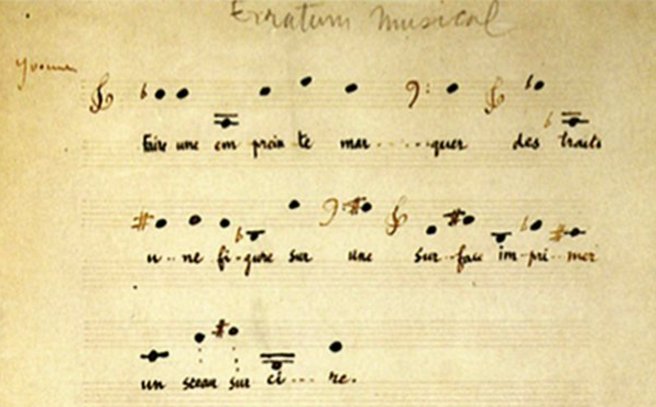 Erratum Musical
Yvonne
Faire une em prein te mar.....quer des traits
u..ne fi-gure sur une sur-face im-pri-mer
un sceau sur ci...re.